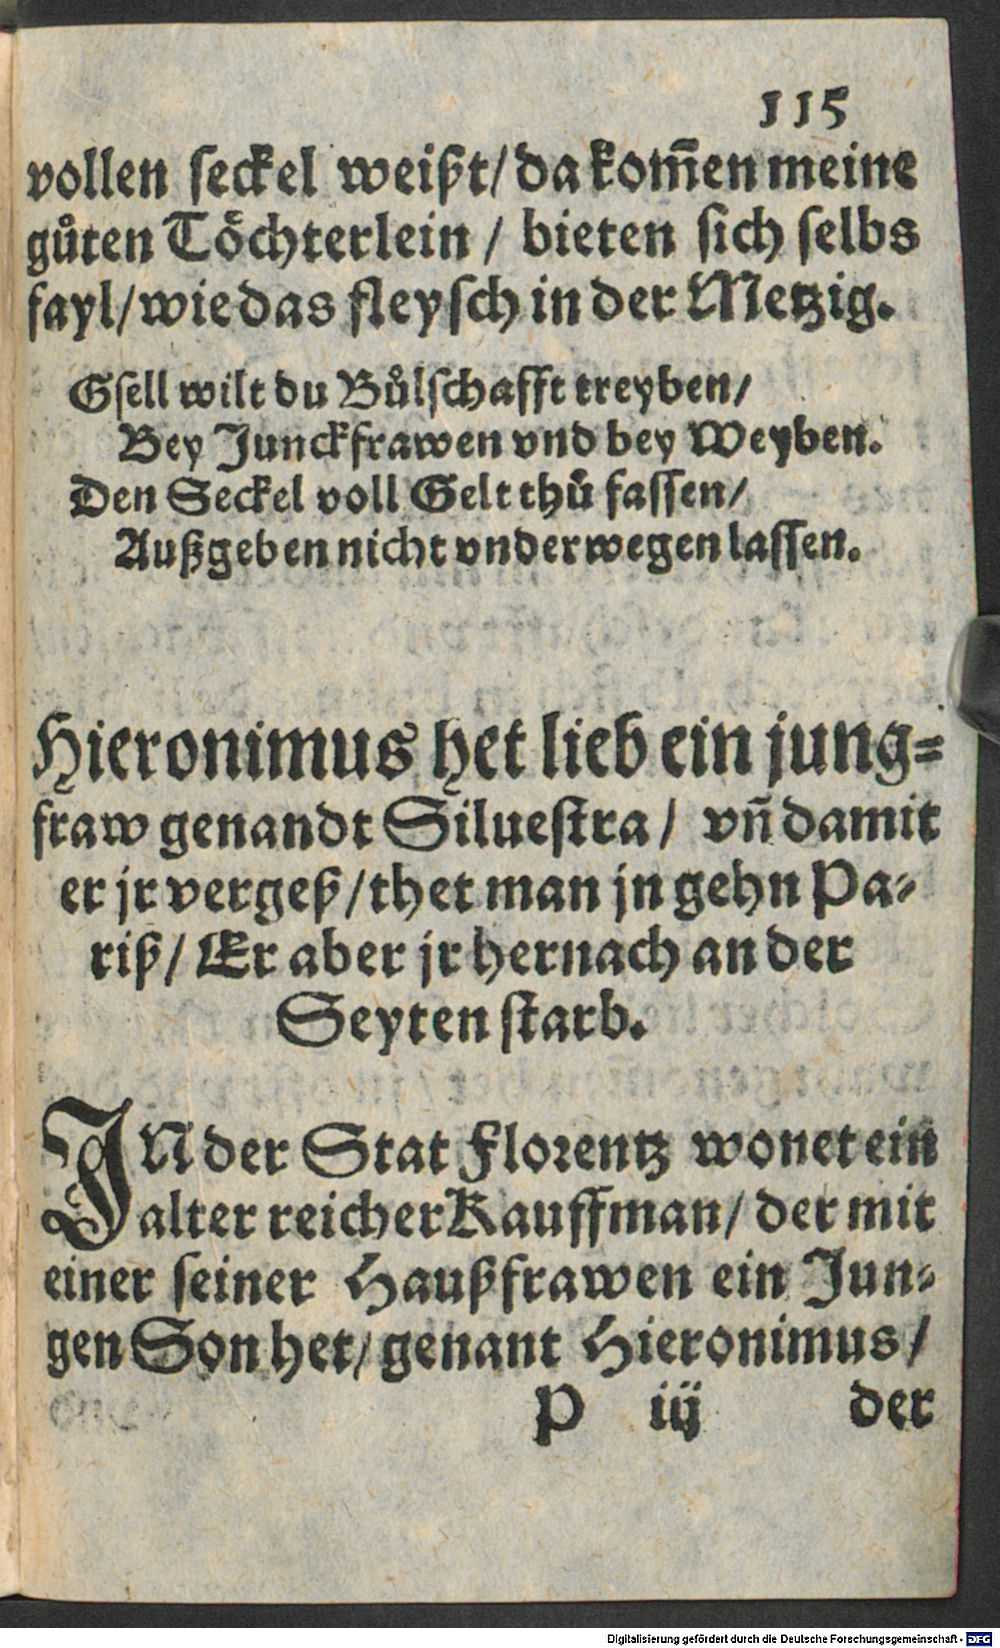 115
vollen seckel weißt/ da kom̃en meine
gůten Toͤchterlein / bieten sich selbs
fayl/ wie das fleysch in der Metzig.
Gsell wilt du Bůlschafft treyben/
Bey Junckfrawen vnd bey Weyben.
Den Seckel voll Gelt thů fassen/
Außgeben nicht vnderwegen lassen.
Hieronimus het lieb ein jung=
fraw genandt Siluestra / vñ damit
er jr vergeß/ thet man jn gehn Pa-
riß/ Er aber jr hernach an der
Seyten starb.
IN der Stat Florentz wonet ein
alter reicher Kauffman/ der mit
einer seiner Haußfrawen ein Jun-
gen Son het/ genant Hieronimus /
P iij der
Digitalisierung gefördert durch die Deutsche Forschungsgemeinschaft - DFG